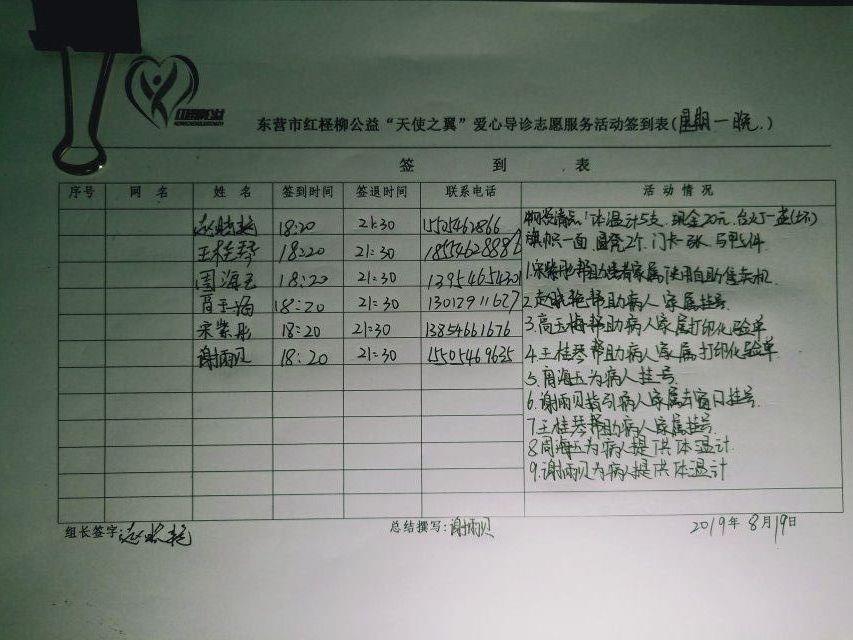 东营市红柽柳公益“天使之翼”爱心导诊志愿服务活动签到表(星期一晚.)
签 到 表
序号 网 名 姓 名 签到时间 签退时间 联系电话 活 动 情 况
赵晓艳 18:20 21:30 1525462866
王桂琴 18:20 21:30 18554628882
周海玉 18:20 21:30 13954654301
高玉梅 18:20 21:30 13012911627
宋紫彤 18:20 21:30 13854661676
谢雨贝 18:20 21:30 15505469635
物资清点:体温计5支.现金20元.台灯一盏(坏)
旗帜一面 团凳2个.门卡一张.马甲4件
1.宋紫彤帮助患者家属使用自助售卖机.
2.赵晓艳帮助病人家属挂号.
3.高玉梅帮助病人家属打印化验单
4.王桂琴帮助病人家属打印化验单
5.周海玉为病人挂号.
6.谢雨贝指引病人家属去窗口挂号.
7.王桂琴帮助病人家属挂号.
8.周海玉为病人提供体温计.
9.谢雨贝为病人提供体温计
组长签字:赵晓艳 总结撰写:谢雨贝 2019年8月19日